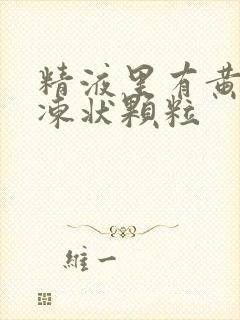 精液里有黄
凍状顆粒
維一